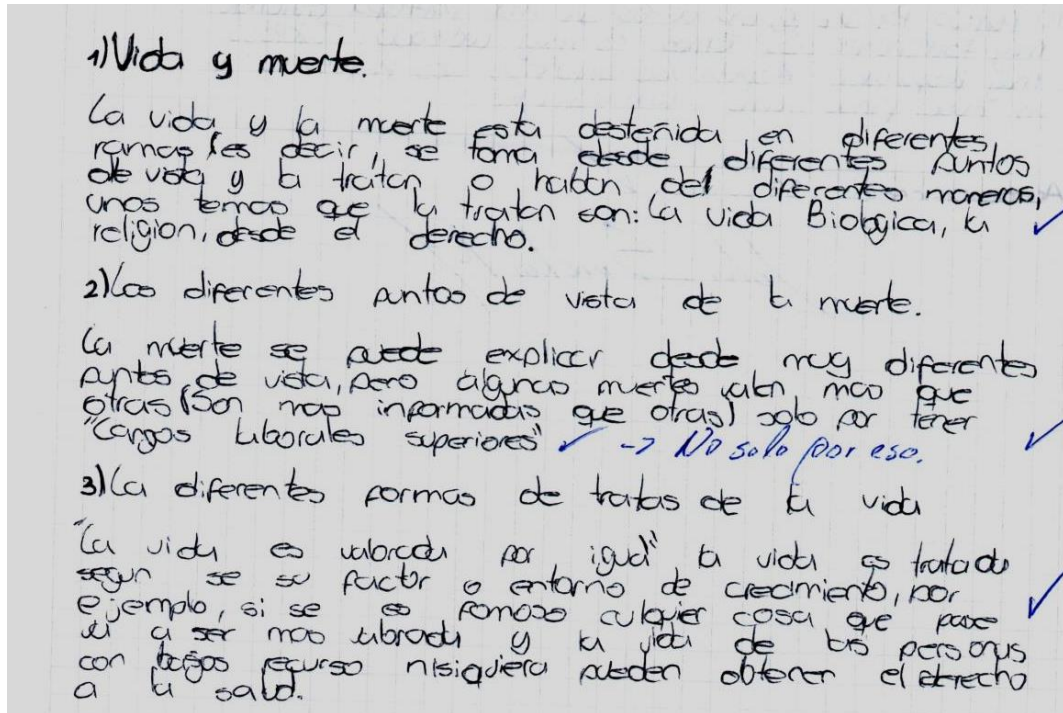 1) Vida y muerte.
La vida y la muerte esta desteñida en diferentes
ramas, es decir, se toma desde diferentes puntos
de vista y la tratan o hablan del diferentes maneras,
unos temas que la tratan son: la vida Biologica, la
religion, desde el derecho.
2) Los diferentes puntos de vista de la muerte.
La muerte se puede explicar desde muy diferentes
puntos de vista, pero algunas muertes valen mas que
otras (Son mas informadas que otras) solo por tener
"Cargos laborales superiores" ✓ -> No solo por eso.
3) La diferentes formas de tratas de la vida
"La vida es valorada por igual" la vida es tratada
segun se su factor o entorno de crecimiento, por
ejemplo, si se es famoso culquier cosa que pase
va a ser mas valorada y la vida de las personas
con bajos recurso nisiquiera pueden obtener el derecho
a la salud.